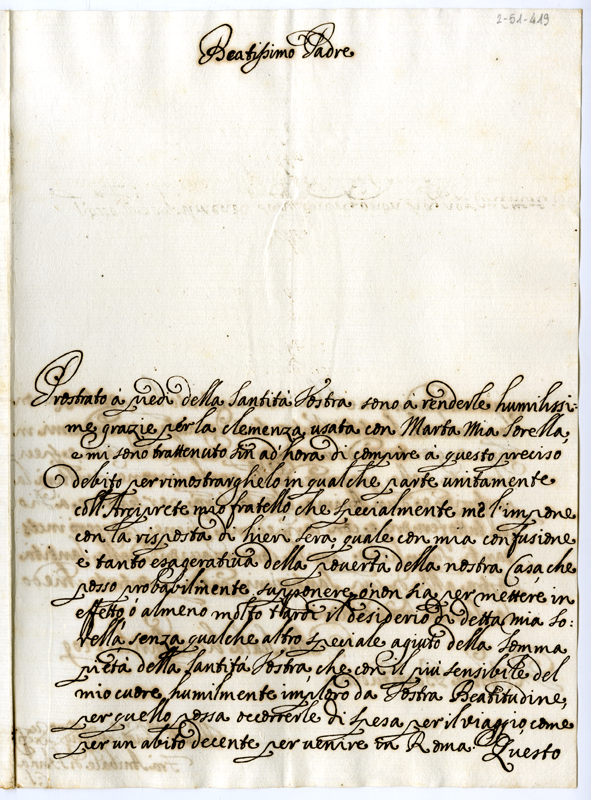 2-51-419
Beatissimo Padre
Prostrato á piedi della Santitá Vostra sono á renderle humilissi-
me grazie per la clemenza usata con Marta mia Sorella,
e mi sono trattenuto sin ad hora di compire a questo preciso
debito per rimostrarghielo in qualche parte unitamente
coll'Arciprete mio fratello che specialmente me l'impone
con la risposta di hieri sera, quale con mia confusione
è tanto esagerativa della povertá della nostra Casa che
posso probabilmente supponere ó non sia per mettere in
effetto ó almeno molto tardi il desiderio di detta mia So:
rella senza qualche altro speciale agiuto della somma
pietá della Santitá Vostra che con il piú sensibile del
mio cuore humilmente imploro da Vostra Beatitudine,
per quello possa occorrerle di spesa per il viaggio come
per un abito decente per venire in Roma. Questo